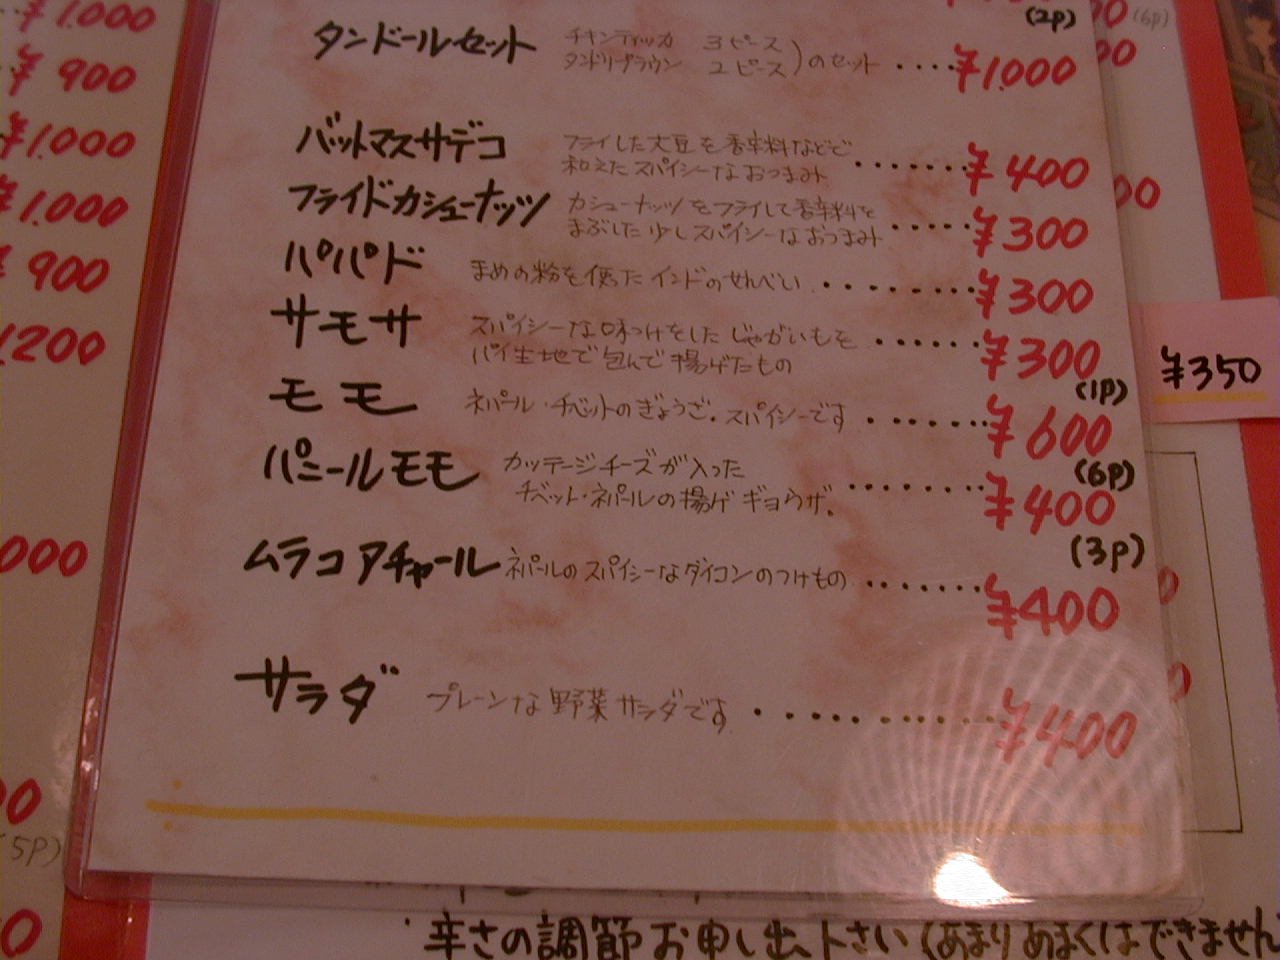 (2P)
(6P)
タンドールセット チキンティッカ 3ピース
タンドリプラウン 2ピース )のセット ····¥1.000
バットマスサデコ フライした大豆を香辛料などで
和えたスパイシーなおつまみ ·······¥400
フライドカシューナッツ カシューナッツをフライして香辛料を
まぶした少しスパイシーなおつまみ ·····¥300
パパド まめの粉を使ったインドのせんべい ·········¥300
サモサ スパイシーな味つけをしたじゃがいもを
パイ生地で包んで揚げたもの ·······¥300
(1P)
モモ ネパール・チベットのぎょうざ.スパイシーです ·······¥600
(6P)
パニールモモ カッテージチーズが入った
チベット・ネパールの揚げギョウザ. ········¥400
(3P)
ムラコアチャール ネパールのスパイシーなダイコンのつけもの ·······¥400
サラダ プレーンな野菜サラダです ··········¥400
¥1.000
¥900
¥1.000
¥1.000
¥900
1200
000
(5P)
¥350
·辛さの調節お申し出下さい(あまりあまくはできません